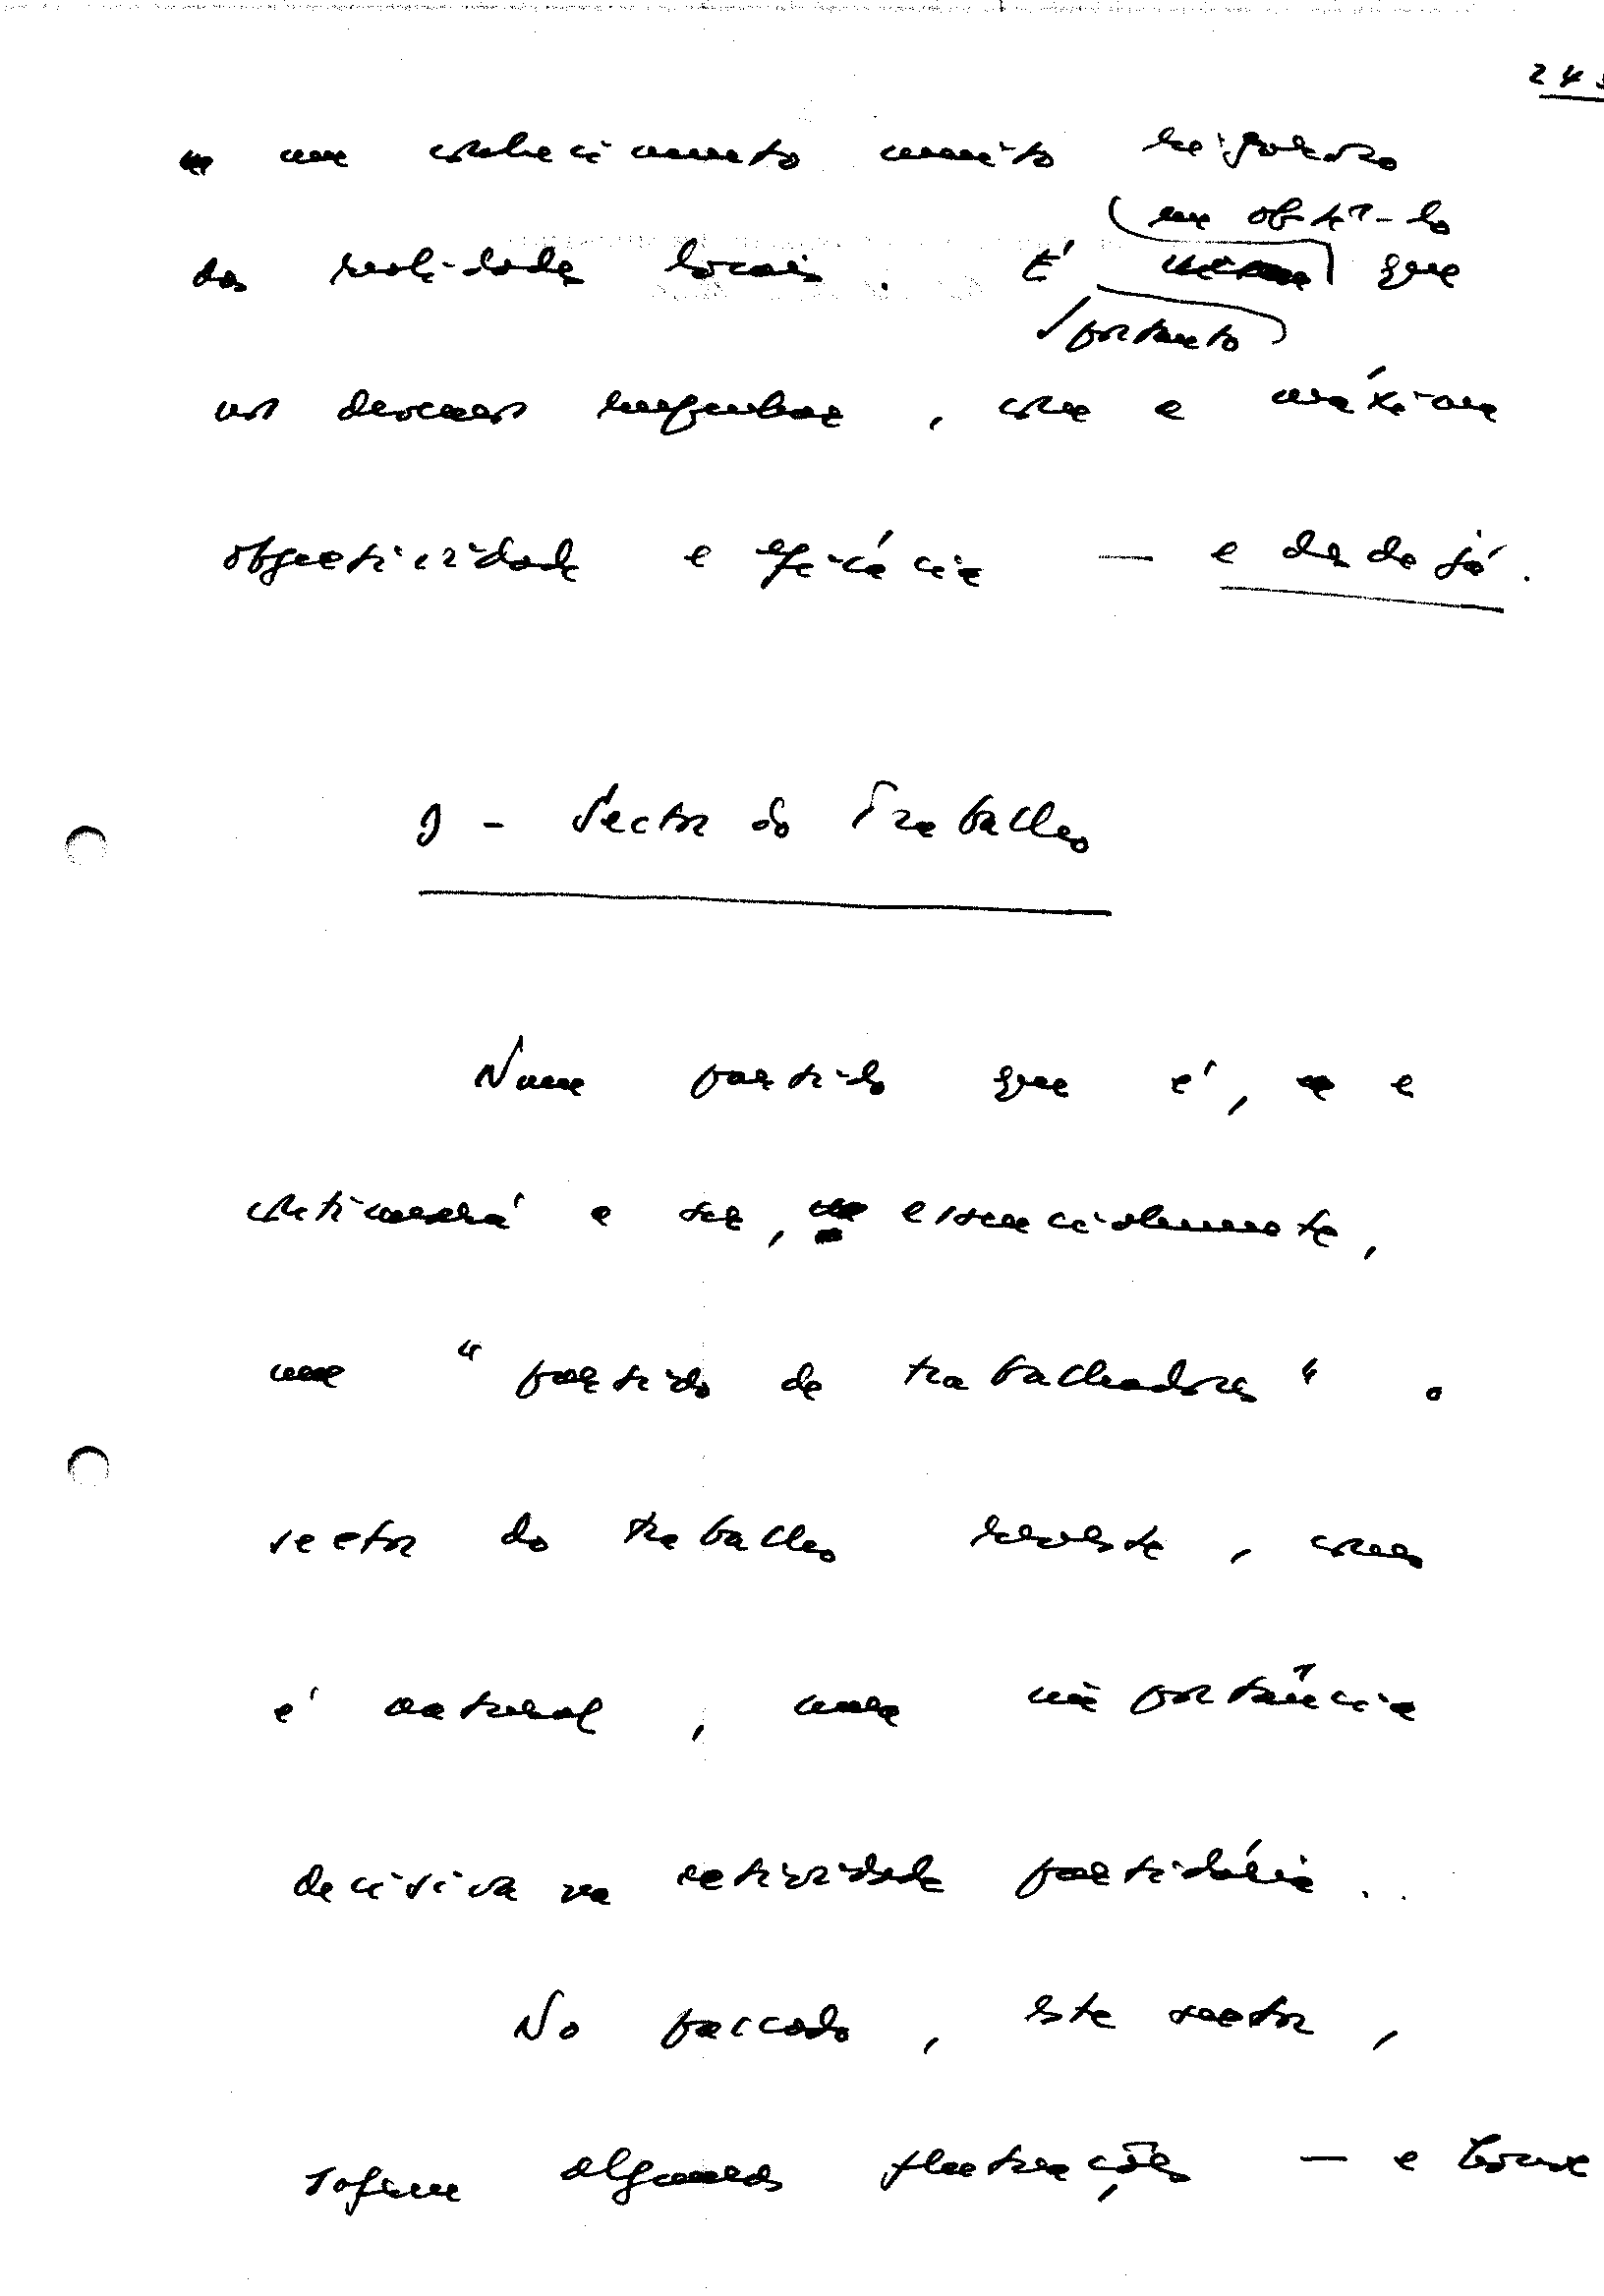 24
um conhecimento muito rigoroso
em obtê-lo
das realidades locais. É que
portanto
nos devemos empenhar, com a máxima
objectividade e eficácia — e desde já.
9 - Sector do Trabalho
Num partido que é, e
continuará a ser, essencialmente,
um "partido de trabalhadores" o
sector do trabalho reveste, como
é natural, uma importância
decisiva na actividade partidária.
No passado, este sector,
sofreu algumas flutuações — e houve